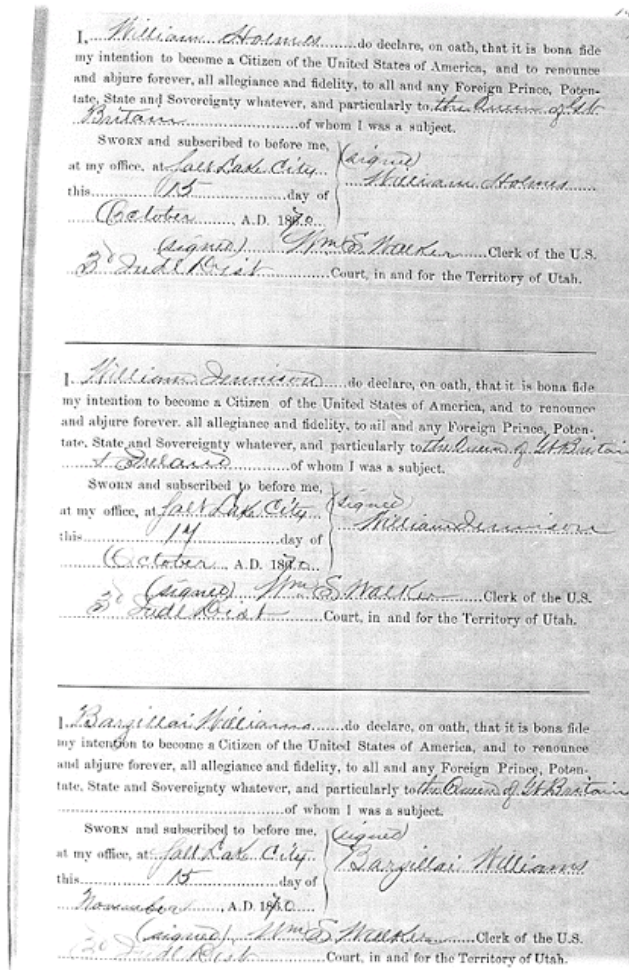 I, William Holmes do declare, on oath, that it is bona fide
my intention to become a Citizen of the United States of America, and to renounce
and abjure forever, all allegiance and fidelity, to all and any Foreign Prince, Poten-
tate, State and Sovereignty whatever, and particularly to the Queen of Gt
Britain of whom I was a subject.
SWORN and subscribed to before me,
at my office, at Salt Lake City (signed)
this 15 day of William Holmes
October, A.D. 1870
(signed) Wm S. Walker Clerk of the U.S.
3d Judl Dist Court, in and for the Territory of Utah.
I William Jennison do declare, on oath, that it is bona fide
my intention to become a Citizen of the United States of America, and to renounce
and abjure forever. all allegiance and fidelity, to all and any Foreign Prince, Poten-
tate, State and Sovereignty whatever, and particularly to the Queen of Gt Britain
& Ireland of whom I was a subject.
SWORN and subscribed to before me,
at my office, at Salt Lake City (signed)
this 17 day of William Jennison
October A.D. 1870
(signed) Wm S. Walker Clerk of the U.S.
3d Judl Dist Court, in and for the Territory of Utah.
I Barzillai Williams do declare, on oath, that it is bona fide
my intention to become a Citizen of the United States of America, and to renounce
and abjure forever, all allegiance and fidelity, to all and any Foreign Prince, Poten-
tate, State and Sovereignty whatever, and particularly to the Queen of Gt Britain
of whom I was a subject.
SWORN and subscribed to before me, (signed)
at my office, at Salt Lake City Barzillai Williams
this 15 day of
November, A.D. 1870
(signed) Wm S. Walker Clerk of the U.S.
3d Judl Dist Court, in and for the Territory of Utah.